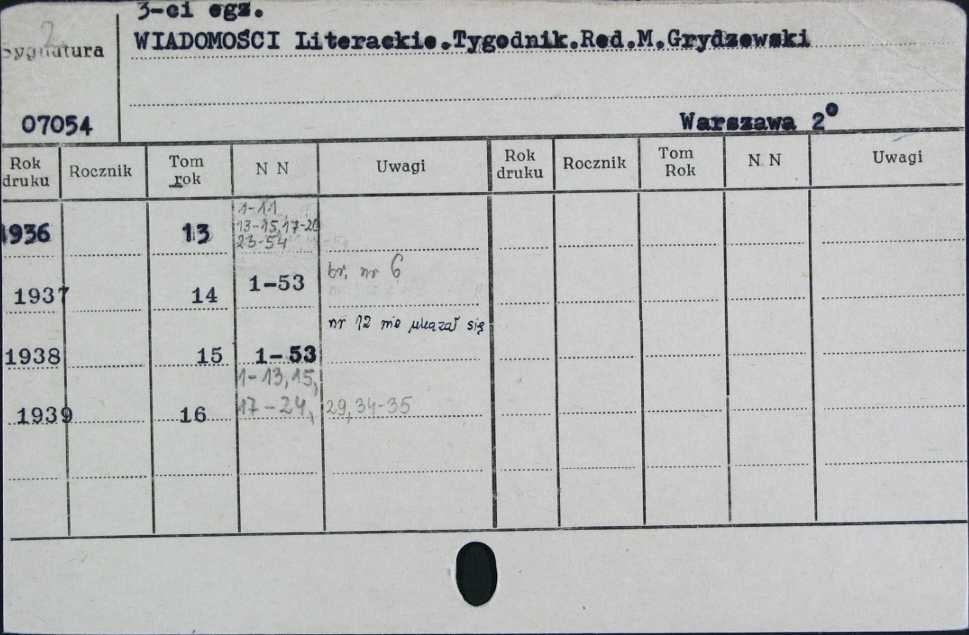 3-ci egz.
2
Sygnatura
WIADOMOŚCI Literackie.Tygodnik.Red.M.Grydzewski
07054
Warszawa 2°
Rok druku Rocznik Tom rok N N Uwagi Rok druku Rocznik Tom Rok N. N Uwagi
1-11
13-15,17-20
1936 13 23-54
br. nr 6
1937 14 1-53
nr 12 nie ukazał się
1938 15 1-53
1-13,15,
1939 16 17-24, 29,34-35